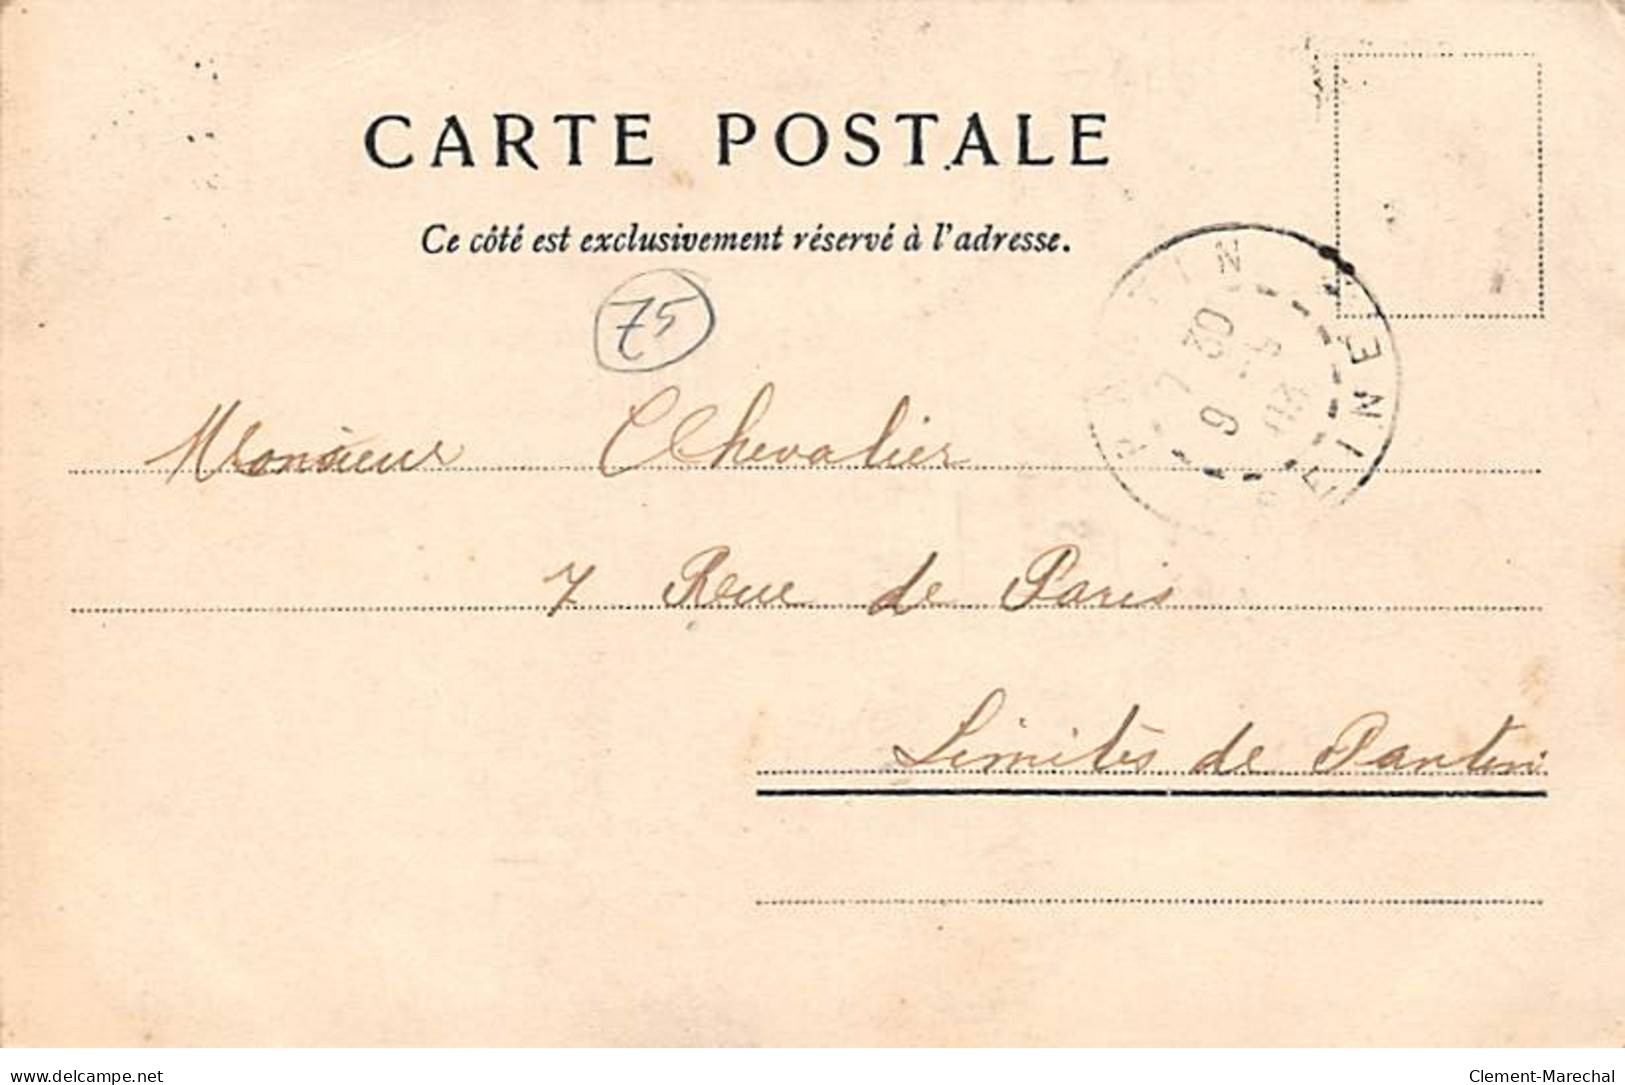 CARTE POSTALE
Ce côté est exclusivement réservé à l'adresse.
75
PANTIN
7 30
9 -5
03
SEINE
Monsieur Chevalier
7 Rue de Paris
Limites de Pantin
www.delcampe.net
Clement-Marechal